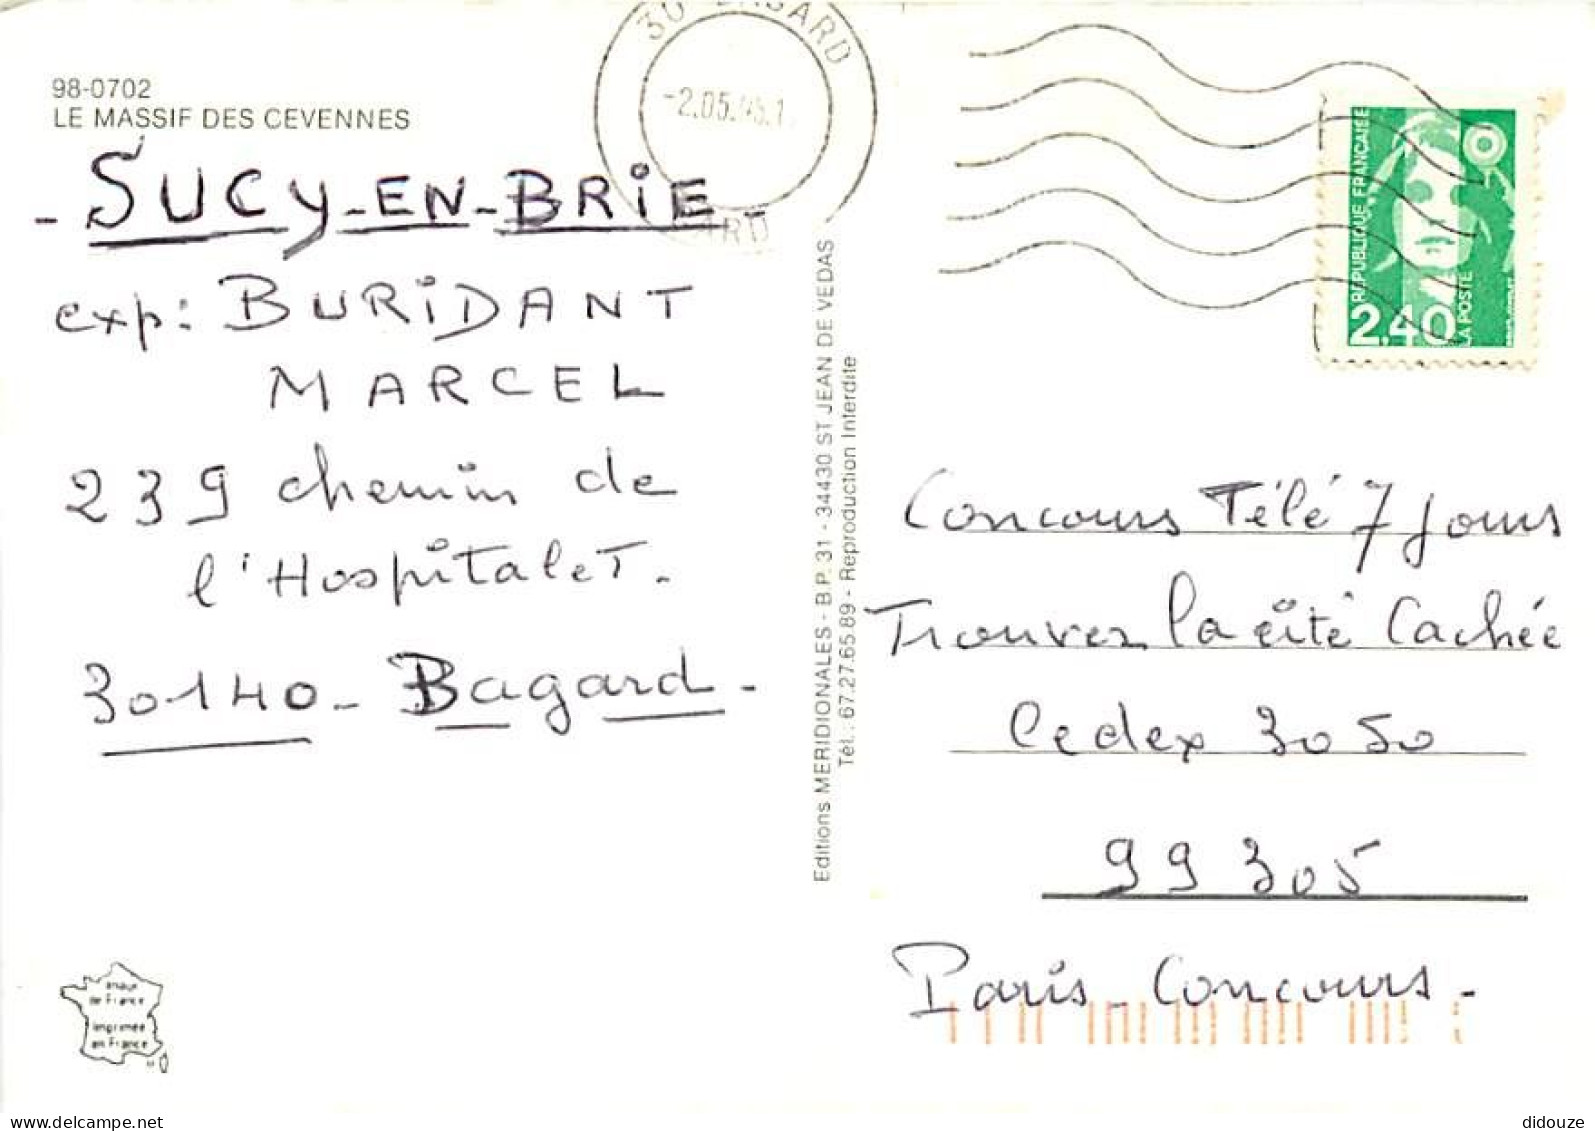 98-0702
LE MASSIF DES CEVENNES
- SUCY-EN-BRIE
exp: BURIDANT
MARCEL
239 chemin de
l'HospitaleT.
30140 - Bagard -
de France
imprimée
en France
Editions MERIDIONALES - B.P. 31 - 34430 ST JEAN DE VEDAS
Tél.: 67.27.65.89 - Reproduction Interdite
30 BAGARD
-2.05.
GARD
REPUBLIQUE FRANÇAISE
2,40
LA POSTE
Concours Télé 7 jours
Trouvez la cité Cachée
Cedex 3050
99305
Paris - Concours -
www.delcampe.net
didouze